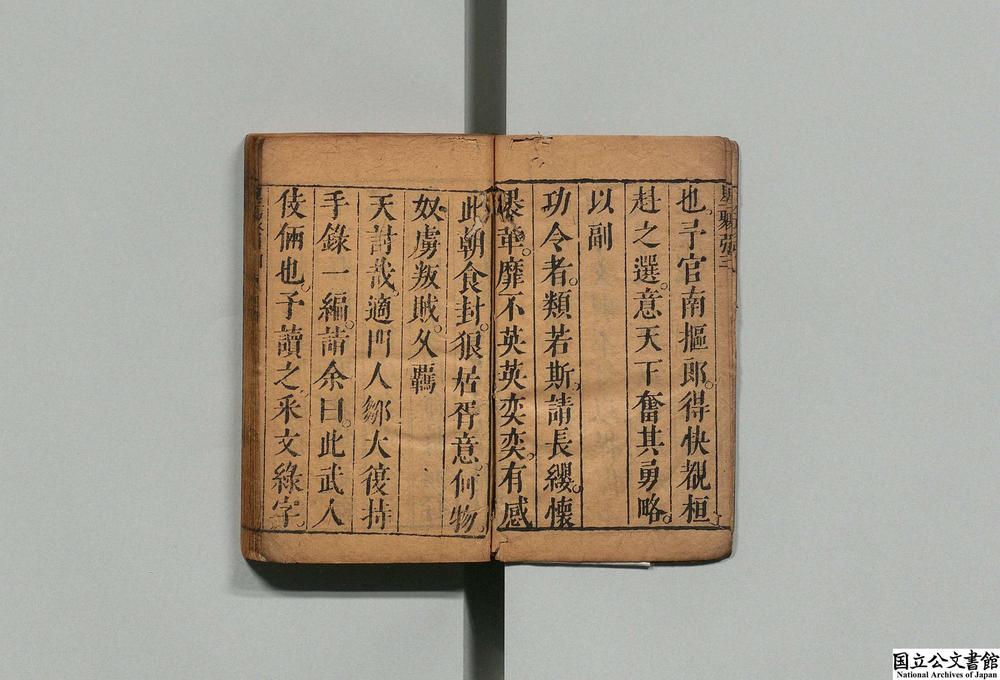 也。予官南樞郎。得快覩桓
赳之選。意天下奮其勇略。
以副
功令者。類若斯。請長纓。懷
畏革。靡不英英奕奕。有感
此朝食封。狼居胥意。何物
奴虜叛賊。久羈
天討哉。適門人鄒大復持
手錄一編。請余曰。此武人
伎倆也。予讀之。釆文綠字。
国立公文書館
National Archives of Japan